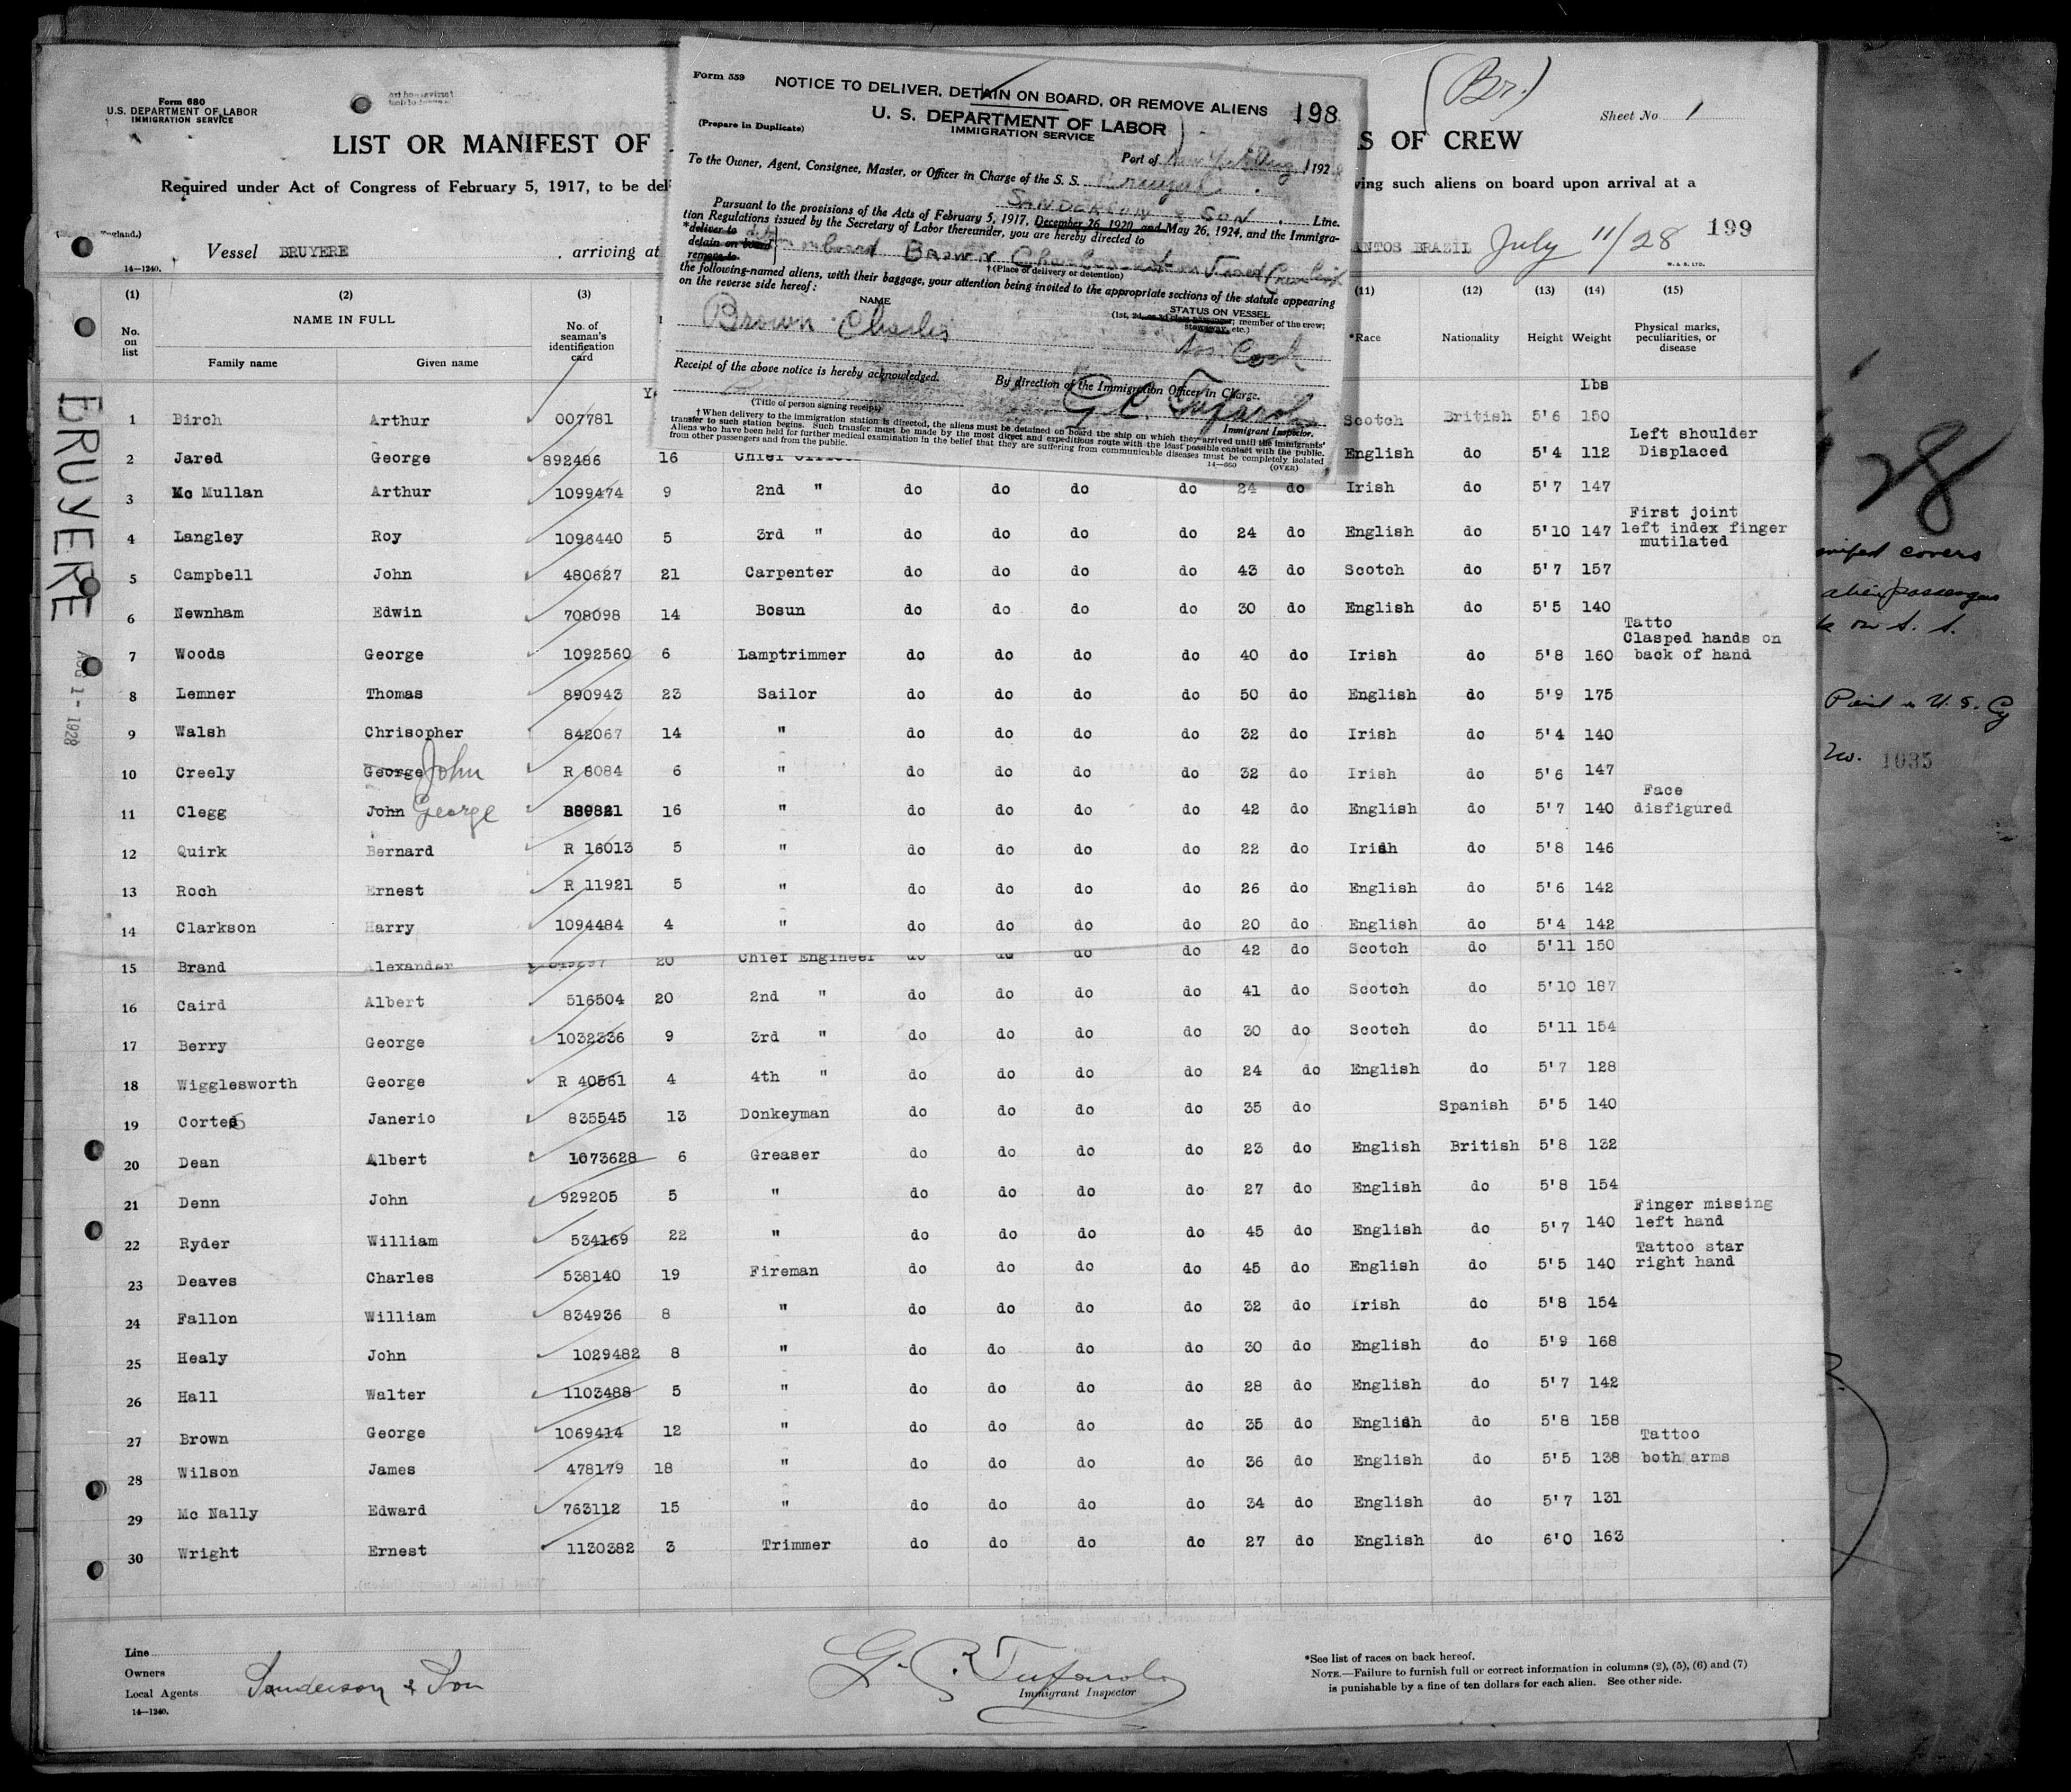 Form 680
U.S. DEPARTMENT OF LABOR
IMMIGRATION SERVICE
LIST OR MANIFEST OF
S OF CREW
(Br.)
Sheet No. 1
Required under Act of Congress of February 5, 1917, to be del
ving such aliens on board upon arrival at a
Vessel BRUYERE arriving at
ANTOS BRAZIL July 11/28 199
14—1240.
W. & S. LTD.
Form 559
NOTICE TO DELIVER, DETAIN ON BOARD, OR REMOVE ALIENS 198
U. S. DEPARTMENT OF LABOR
IMMIGRATION SERVICE
(Prepare in Duplicate)
Port of New York Aug 1 192
To the Owner, Agent, Consignee, Master, or Officer in Charge of the S. S. Bruyere
SANDERSON & SON Line.
Pursuant to the provisions of the Acts of February 5, 1917, December 26, 1920, and May 26, 1924, and the Immigra-
tion Regulations issued by the Secretary of Labor thereunder, you are hereby directed to
*deliver to
detain on board on board Brown Charles
remove to
†(Place of delivery or detention)
the following-named aliens, with their baggage, your attention being invited to the appropriate sections of the statute appearing
on the reverse side hereof:
NAME STATUS ON VESSEL
(1st, 2d, or 3d class passenger; member of the crew;
stowaway, etc.)
Brown Charles Ass. Cook
Receipt of the above notice is hereby acknowledged. By direction of the Immigration Officer in Charge.
(Title of person signing receipt) G. C. Tufarolo
Immigrant Inspector.
† When delivery to the immigration station is directed, the aliens must be detained on board the ship on which they arrived until the immigrants'
transfer to such station begins. Such transfer must be made by the most direct and expeditious route with the least possible contact with the public.
Aliens who have been held for further medical examination in the belief that they are suffering from communicable diseases must be completely isolated
from other passengers and from the public.
14—660 (OVER)
(1) (2) (3) (11) (12) (13) (14) (15)
No. on list NAME IN FULL No. of seaman's identification card *Race Nationality Height Weight Physical marks, peculiarities, or disease
Family name Given name
Lbs
1 Birch Arthur 007781 Scotch British 5'6 150
2 Jared George 892486 16 Chief Officer English do 5'4 112 Left shoulder Displaced
3 Mc Mullan Arthur 1099474 9 2nd " do do do do 24 do Irish do 5'7 147
4 Langley Roy 1096440 5 3rd " do do do do 24 do English do 5'10 147 First joint left index finger mutilated
5 Campbell John 480627 21 Carpenter do do do do 43 do Scotch do 5'7 157
6 Newnham Edwin 708098 14 Bosun do do do do 30 do English do 5'5 140
7 Woods George 1092560 6 Lamptrimmer do do do do 40 do Irish do 5'8 160 Tatto Clasped hands on back of hand
8 Lemner Thomas 890943 23 Sailor do do do do 50 do English do 5'9 175
9 Walsh Chrisopher 842067 14 " do do do do 32 do Irish do 5'4 140
10 Creely George John R 8084 6 " do do do do 32 do Irish do 5'6 147
11 Clegg John George 889821 16 " do do do do 42 do English do 5'7 140 Face disfigured
12 Quirk Bernard R 16013 5 " do do do do 22 do Irish do 5'8 146
13 Roch Ernest R 11921 5 " do do do do 26 do English do 5'6 142
14 Clarkson Harry 1094484 4 " do do do do 20 do English do 5'4 142
15 Brand Alexander 20 Chief Engineer do do do do 42 do Scotch do 5'11 150
16 Caird Albert 516504 20 2nd " do do do do 41 do Scotch do 5'10 187
17 Berry George 1032336 9 3rd " do do do do 30 do Scotch do 5'11 154
18 Wigglesworth George R 40561 4 4th " do do do do 24 do English do 5'7 128
19 Cortes Janerio 835545 13 Donkeyman do do do do 35 do Spanish 5'5 140
20 Dean Albert 1073628 6 Greaser do do do do 23 do English British 5'8 132
21 Denn John 929205 5 " do do do do 27 do English do 5'8 154
22 Ryder William 534169 22 " do do do do 45 do English do 5'7 140 Finger missing left hand
23 Deaves Charles 538140 19 Fireman do do do do 45 do English do 5'5 140 Tattoo star right hand
24 Fallon William 834936 8 " do do do do 32 do Irish do 5'8 154
25 Healy John 1029482 8 " do do do do 30 do English do 5'9 168
26 Hall Walter 1103488 5 " do do do do 28 do English do 5'7 142
27 Brown George 1069414 12 " do do do do 35 do English do 5'8 158
28 Wilson James 478179 18 " do do do do 36 do English do 5'5 138 Tattoo both arms
29 Mc Nally Edward 763112 15 " do do do do 34 do English do 5'7 131
30 Wright Ernest 1130382 3 Trimmer do do do do 27 do English do 6'0 163
BRUYERE
AUG 1 - 1928
Line
Owners
Local Agents Sanderson & Son
14—1240.
G. C. Tufarolo
Immigrant Inspector
*See list of races on back hereof.
NOTE.—Failure to furnish full or correct information in columns (2), (5), (6) and (7)
is punishable by a fine of ten dollars for each alien. See other side.
28
covers
alien passengers
on S. S.
U. S. Cy
No. 1035